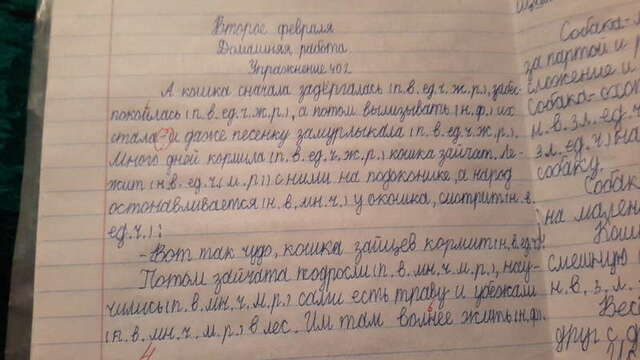 Второе февраля
Домашняя работа
Упражнение 402
А кошка сначала задёргалась (п.в. ед.ч. ж.р.), забес-
покоилась (п.в. ед.ч. ж.р.), а потом вылизывать (н.ф.) их
стала и даже песенку замурлыкала (п.в. ед.ч. ж.р.).
Много дней кормила (п.в. ед.ч. ж.р.) кошка зайчат. Ле-
жит (н.в. ед.ч. (м.р.)) с ними на подоконике, а народ
останавливается (н.в. мн.ч.) у окошка, смотрит (н.в.
ед.ч.):
- Вот так чудо, кошка зайцев кормит (н.в. ед.ч)!
Потом зайчата подросли (п.в. мн.ч. м.р.), нау-
чились (п.в. мн.ч. м.р.) сами есть траву и убежали
(п.в. мн.ч. м.р.) в лес. Им там вольнее жить (н.ф).
4
Собака-
за партой и
сложение и
Собака
н.в. 3л. ед.ч
3л. ед.ч) на
собаку.
Собак
на мален
Кош
смешную
н.в. 3.л.
Вес
друг с д